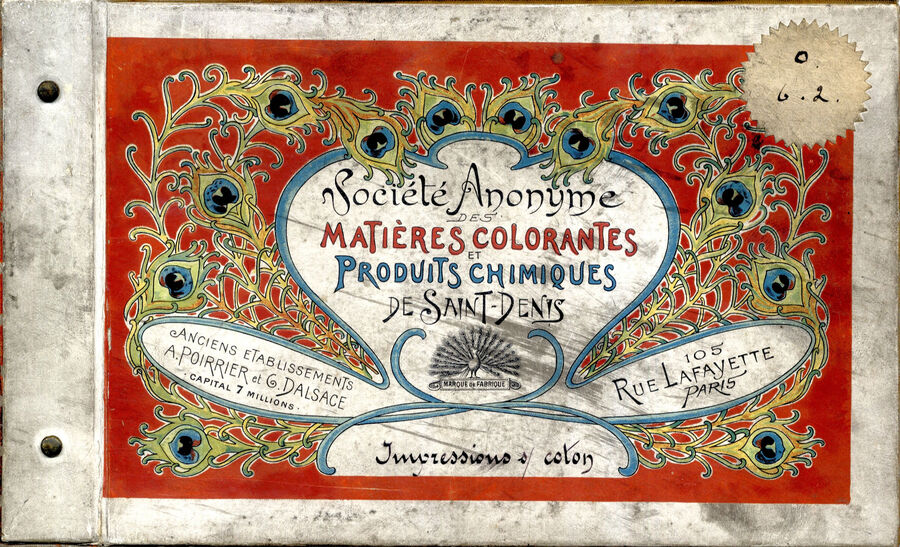 O.
6.2.
Société Anonyme
DES
MATIÈRES COLORANTES
ET
PRODUITS CHIMIQUES
DE SAINT-DENIS
ANCIENS ETABLISSEMENTS
A. POIRRIER et G. DALSACE
· CAPITAL 7 MILLIONS ·
MARQUE DE FABRIQUE
105
RUE LAFAYETTE
PARIS
Impressions s/ coton